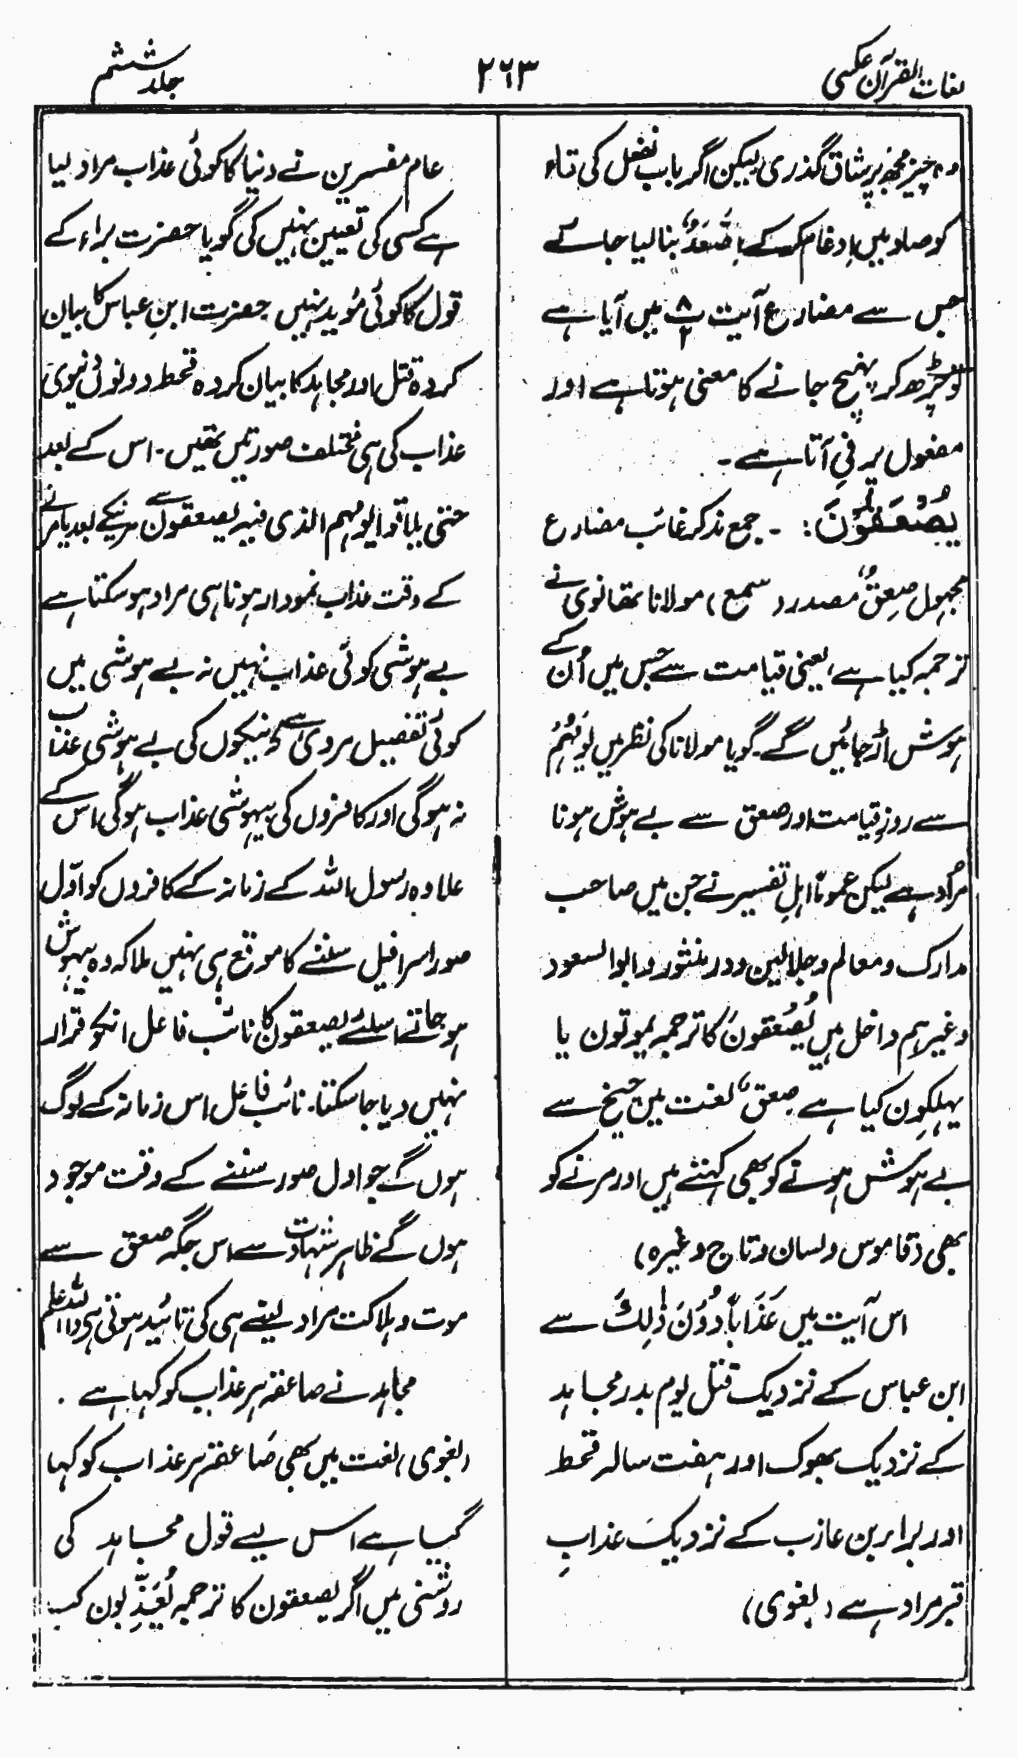 لغات القرآن عکسی
۲۶۳
جلد ششم
وہ چیز مجھ پر شاق گذری لیکن اگر باب تفعل کی تاء
کو صاد میں ادغام کر کے اِصَّعَّدَ بنا لیا جائے
جس سے مضارع آیت ۸/۲ میں آیا ہے
تو چڑھ کر پہنچ جانے کا معنی ہوتا ہے اور
مفعول پر فی آتا ہے۔
یُصْعَقُوْنَ: ۔ جمع مذکر غائب مضارع
مجہول صعِقٌ مصدر (سمع) مولانا تھانوی نے
ترجمہ کیا ہے، یعنی قیامت سے جس میں اُن کے
ہوش اڑ جائیں گے۔ گویا مولانا کی نظر میں یَوْمَہُمْ
سے روزِ قیامت اور صعق سے بے ہوش ہونا
مراد ہے لیکن عموماً اہلِ تفسیر نے جن میں صاحب
مدارک و معالم و جلالین و در منثور و ابوالسعود
وغیرہم داخل ہیں یُصْعَقُونَ کا ترجمہ یموتون یا
یہلکون کیا ہے صعقٌ لغت میں چیخ سے
بے ہوش ہونے کو بھی کہتے ہیں اور مرنے کو
بھی (قاموس ولسان وتاج وغیرہ)
اس آیت میں عَذَابًا دُوْنَ ذٰلِکَ سے
ابن عباس کے نزدیک قتل یوم بدر مجاہد
کے نزدیک بھوک اور ہفت سالہ قحط
اور براء بن عازب کے نزدیک عذابِ
قبر مراد ہے (بغوی)
عام مفسرین نے دنیا کا کوئی عذاب مراد لیا
ہے کسی کی تعیین نہیں کی گویا حضرت براء کے
قول کا کوئی مُوید نہیں حضرت ابنِ عباس کا بیان
کردہ قتل اور مجاہد کا بیان کردہ قحط دونوں دُنیوی
عذاب کی ہی مختلف صورتیں تھیں۔ اس کے بعد
حتیٰ یلاقوا یومہم الذی فیہ یصعقون سے مرنیکے بعد یا مرنے
کے وقت عذاب نمودار ہونا ہی مراد ہو سکتا ہے
بے ہوشی کوئی عذاب نہیں نہ بے ہوشی میں
کوئی تفصیل مروی ہے کہ نیکوں کی بے ہوشی عذاب
نہ ہوگی اور کافروں کی بیہوشی عذاب ہوگی اس کے
علاوہ رسول اللہ کے زمانہ کے کافروں کو اوّل
صور اسرافیل سننے کا موقع ہی نہیں ملا کہ وہ بیہوش
ہو جاتے اسلئے یصعقون کا نائب فاعل انکو قرار
نہیں دیا جا سکتا۔ نائب فاعل اس زمانہ کے لوگ
ہوں گے جو اول صور سننے کے وقت موجود
ہوں گے ظاہر شہادت سے اس جگہ صعق سے
موت و ہلاکت مراد لینے ہی کی تائید ہوتی ہے واللہ اعلم
مجاہد نے صاعقہ ہر عذاب کو کہا ہے ۔
(بغوی) لغت میں بھی صَاعقہ ہر عذاب کو کہا
گیا ہے اس لیے قول مجاہد کی
روشنی میں اگر یصعقون کا ترجمہ یُعَذَّبون کیا